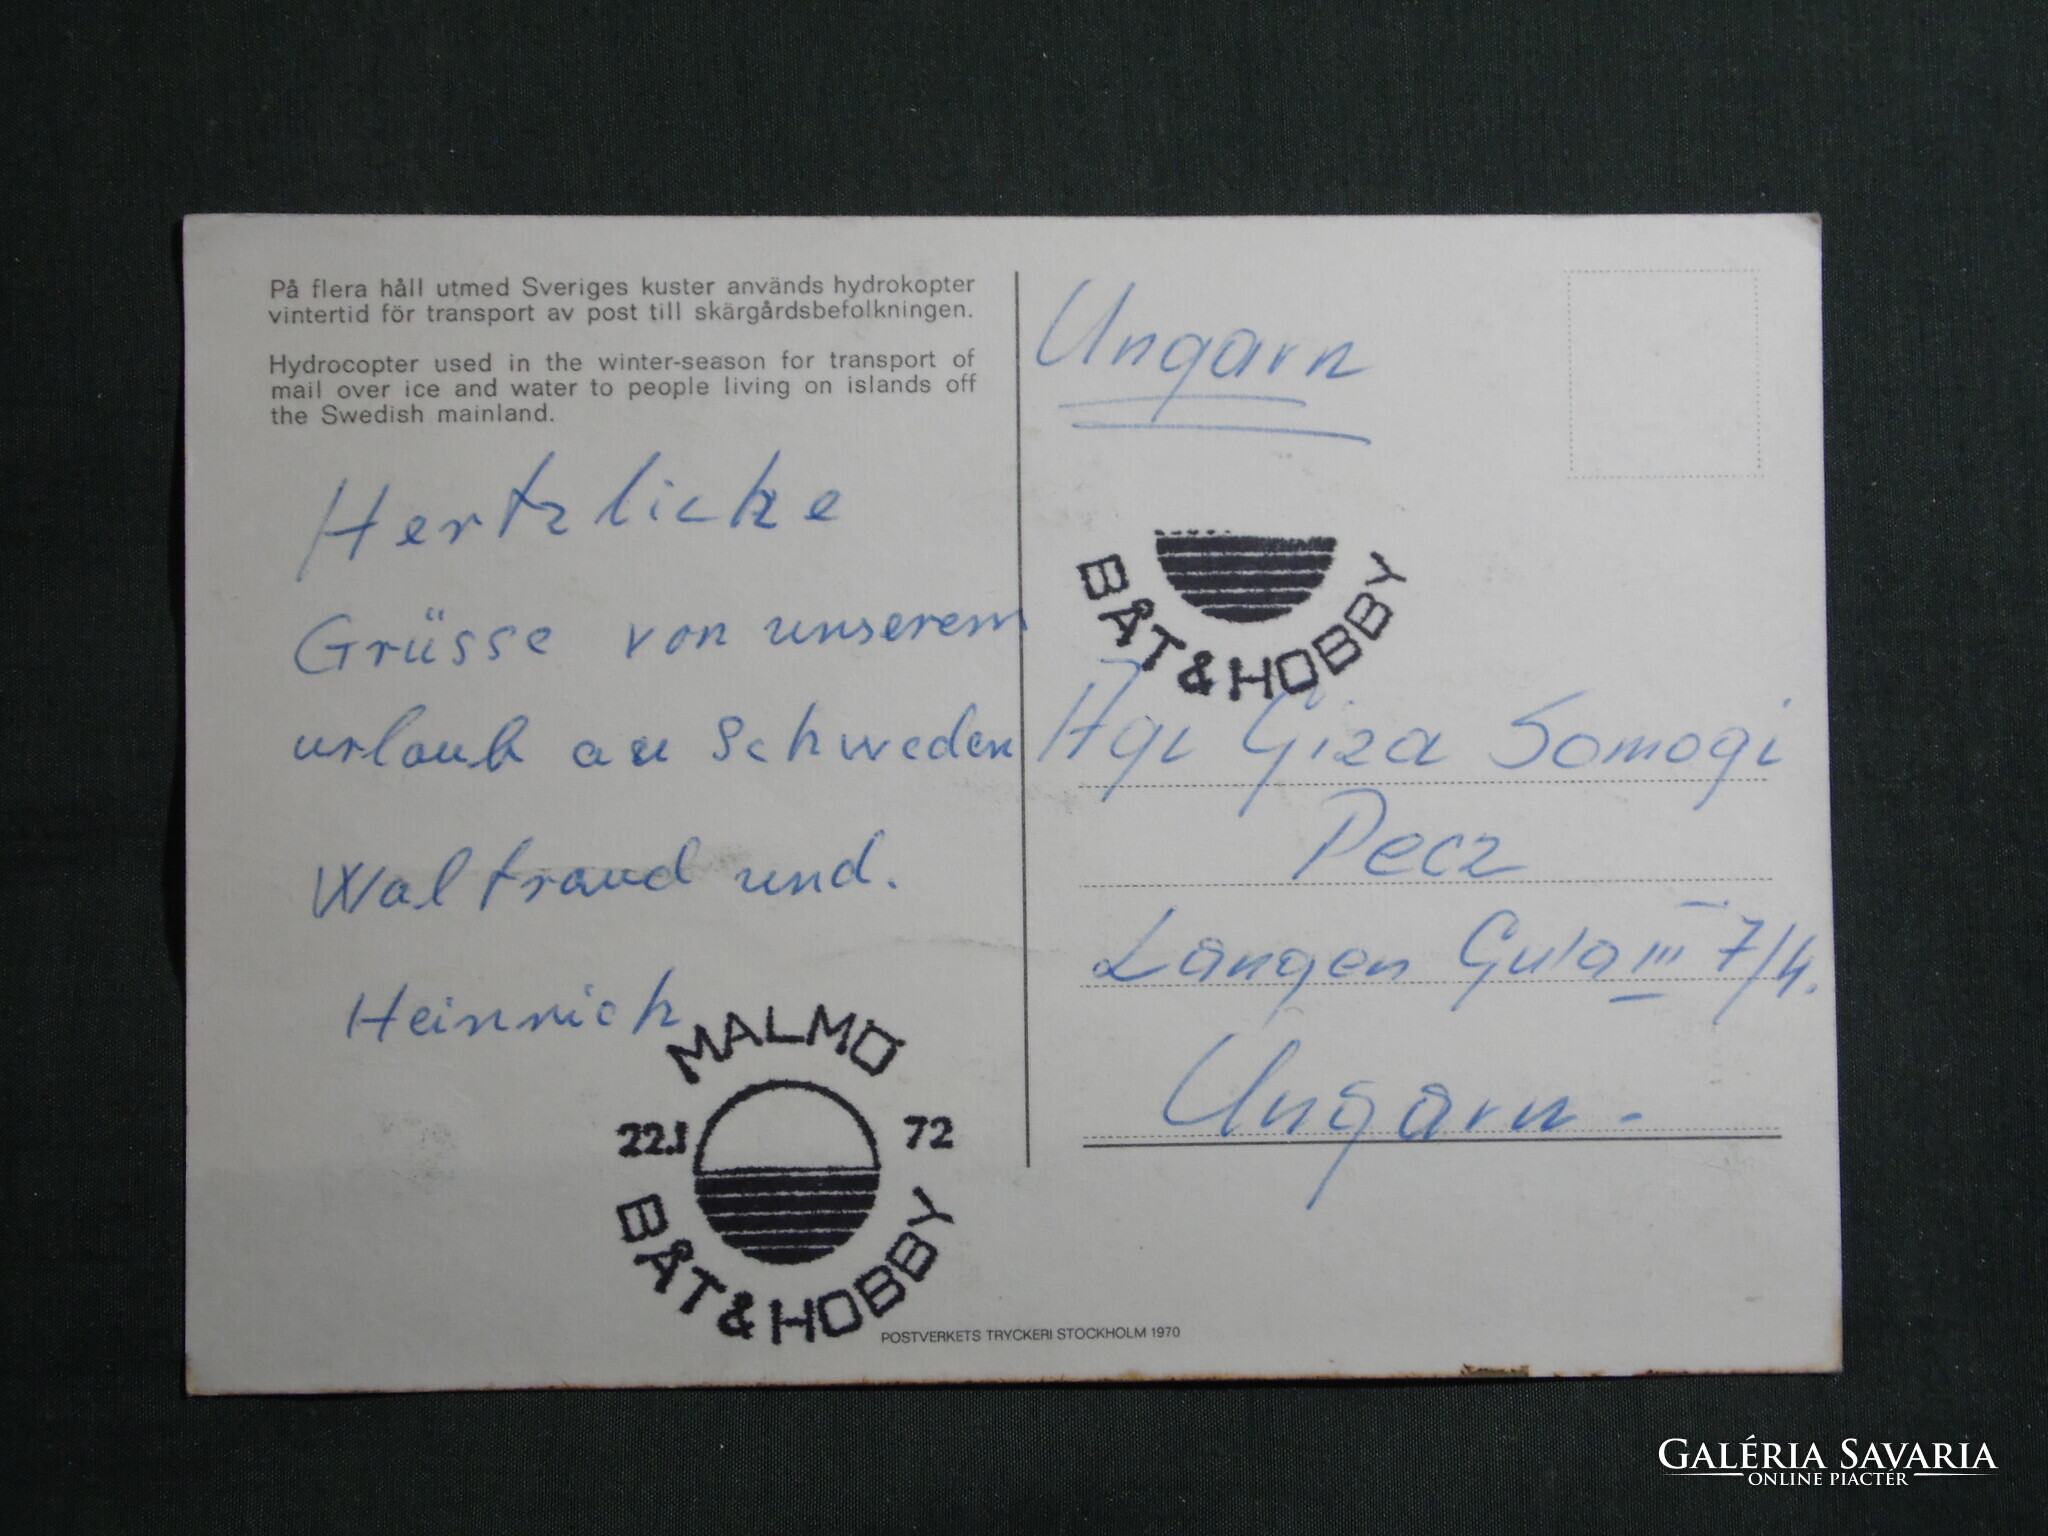 På flera håll utmed Sveriges kuster används hydrokopter
vintertid för transport av post till skärgårdsbefolkningen.
Hydrocopter used in the winter-season for transport of
mail over ice and water to people living on islands off
the Swedish mainland.
Hertzliche
Grüsse von unserem
urlaub au Schweden
Waltraud und.
Heinrich
MALMÖ
22.1 72
BÅT & HOBBY
POSTVERKETS TRYCKERI STOCKHOLM 1970
Ungarn
BÅT & HOBBY
Agi Giza Somogi
Pecz
Langen Gula III 7/4.
Ungarn -
GALÉRIA SAVARIA
ONLINE PIACTÉR